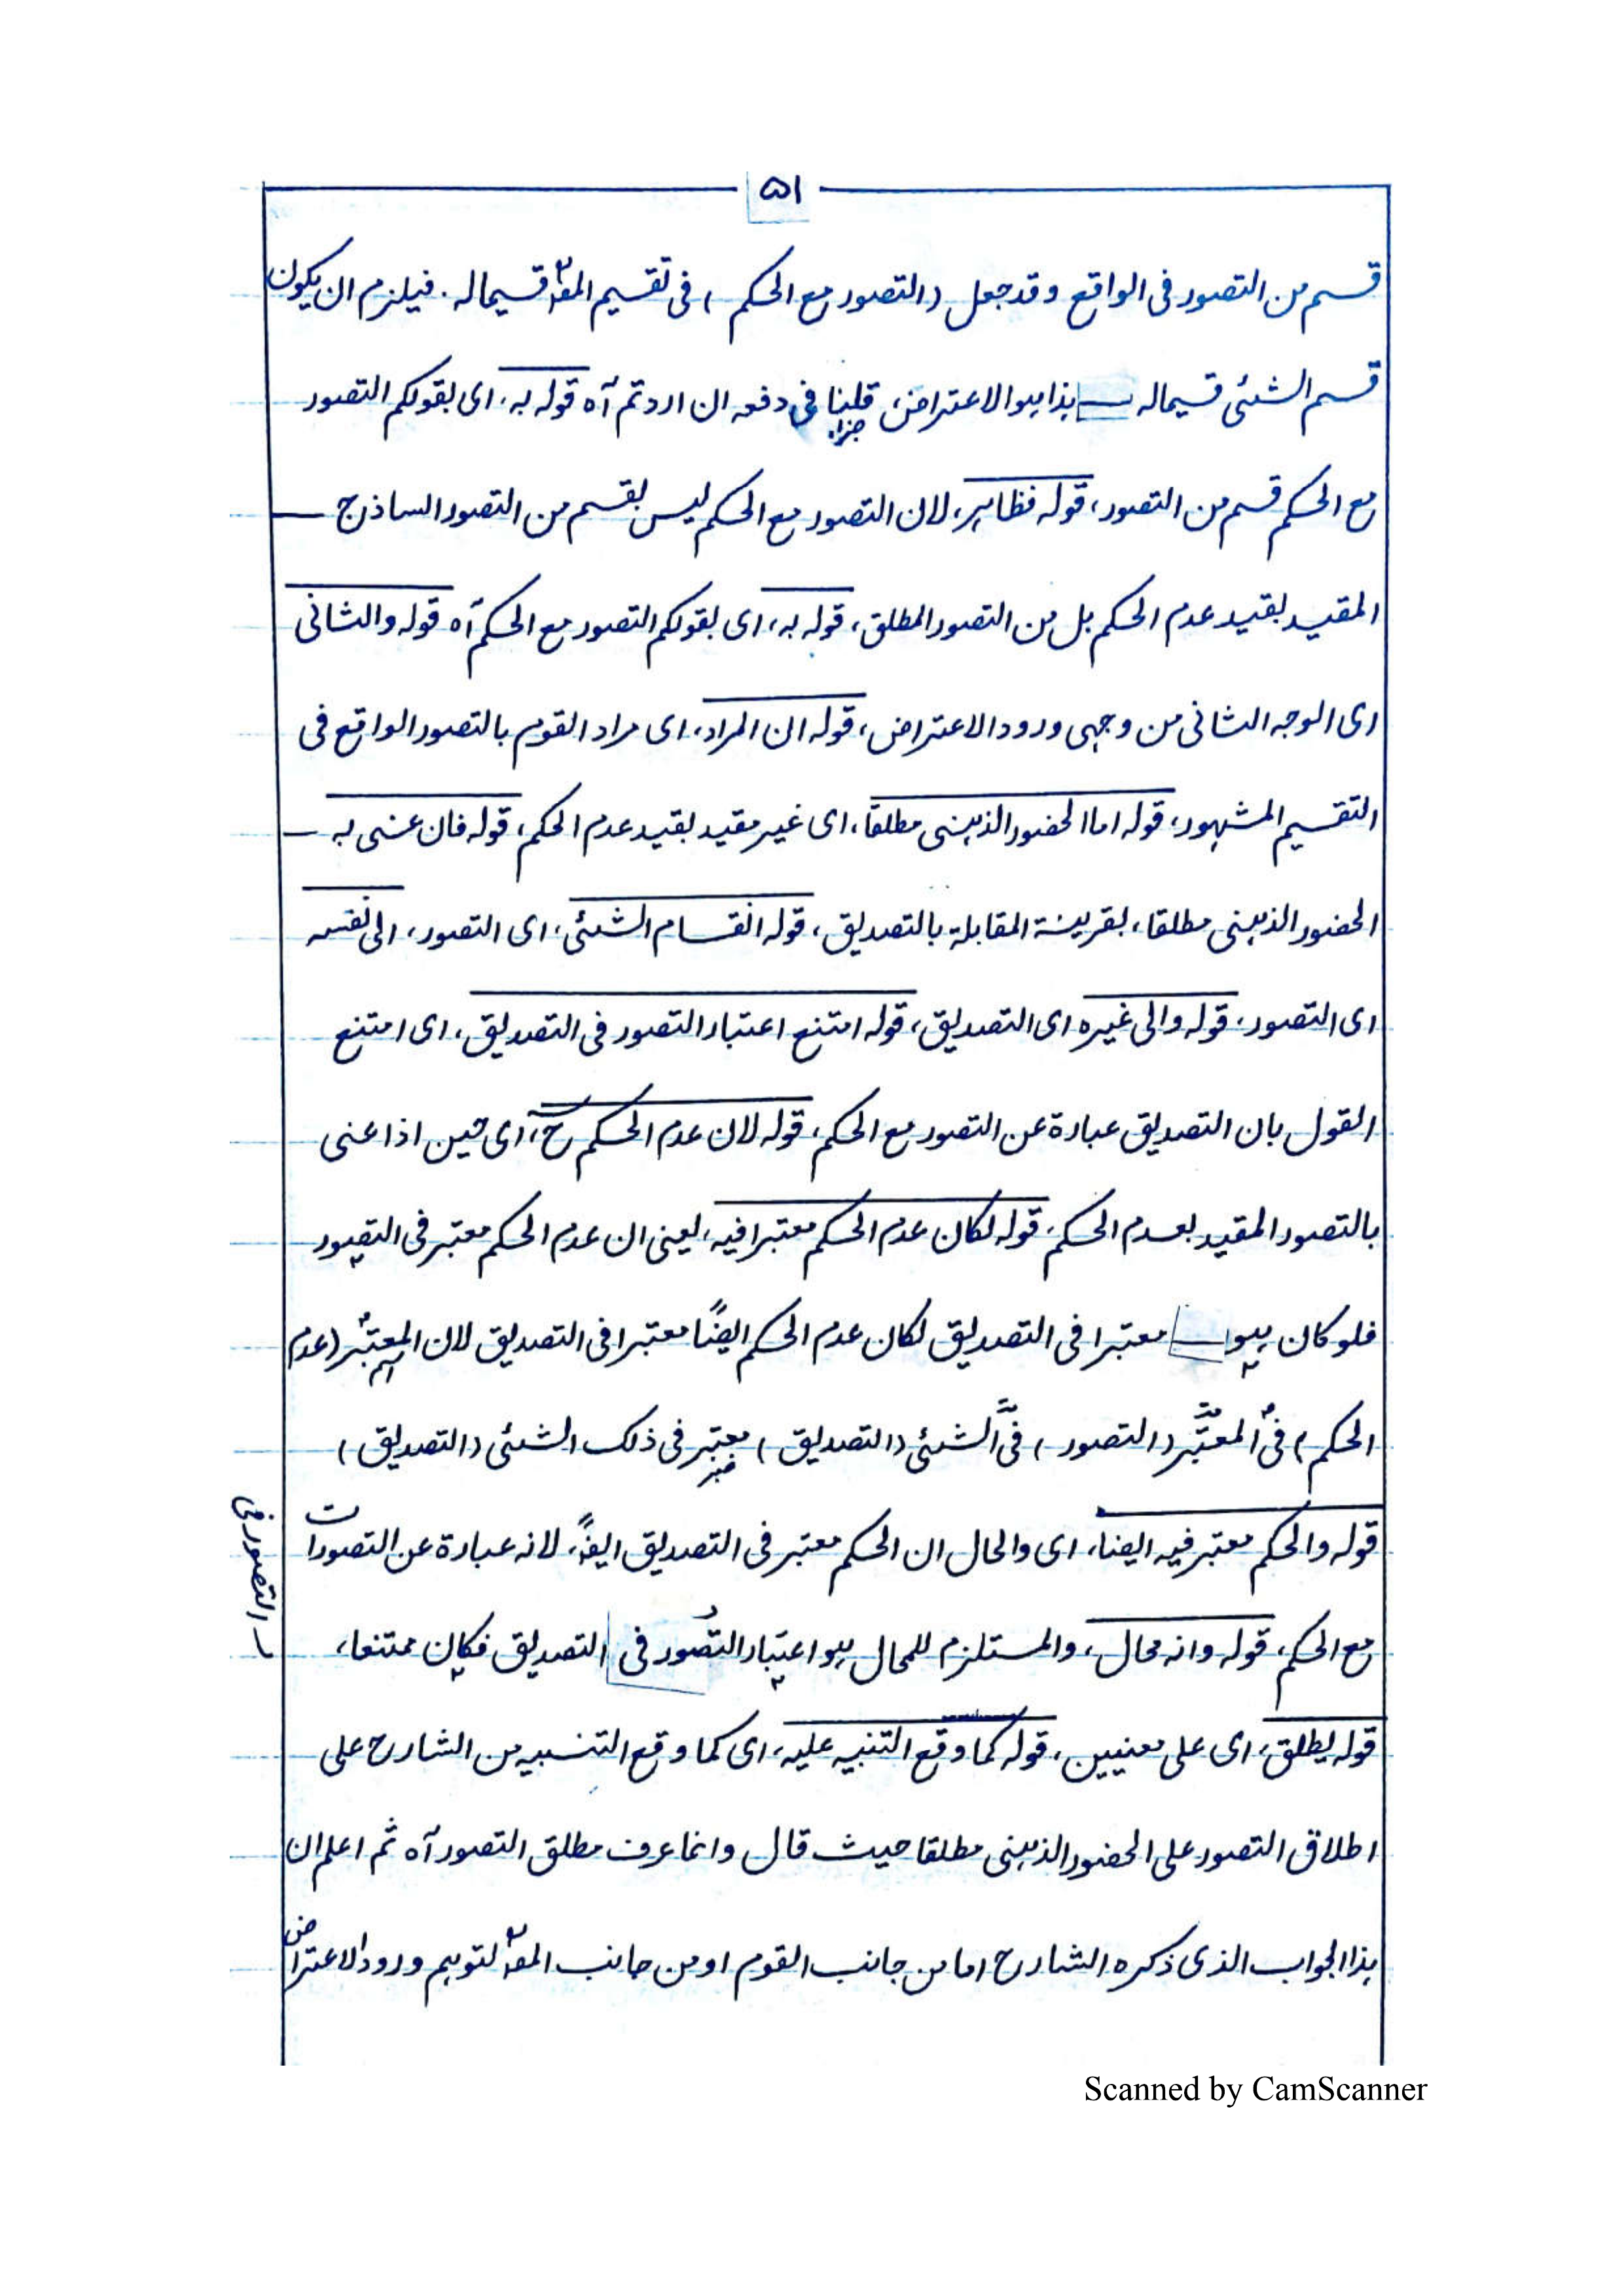 ۵۱
قسم من التصور فی الواقع و قد جعل (التصور مع الحکم) فی تقسیم المصؒ قسیما له. فیلزم ان یکون
قسم الشئی قسیما له ـــ ہذا ہو الاعتراض، قلنا فی دفعہ ان اردتم آہ قولہ بہ، ای بقولکم التصور
جزاء
مع الحکم قسم من التصور، قولہ فظاہر، لان التصور مع الحکم لیس بقسم من التصور الساذج ـــ
المقید بقید عدم الحکم بل من التصور المطلق، قولہ بہ، ای بقولکم التصور مع الحکم آہ قولہ والثانی
ای الوجہ الثانی من وجہی ورود الاعتراض، قولہ ان المراد، ای مراد القوم بالتصور الواقع فی
التقسیم المشہور، قولہ اما الحضور الذہنی مطلقا، ای غیر مقید بقید عدم الحکم، قولہ فان عنی بہ ـــ
الحضور الذہنی مطلقا، بقرینۃ المقابلۃ بالتصدیق، قولہ انقسام الشئی، ای التصور، الی نفسہ
ای التصور، قولہ والی غیرہ ای التصدیق، قولہ امتنع اعتبار التصور فی التصدیق، ای امتنع
القول بان التصدیق عبارۃ عن التصور مع الحکم، قولہ لان عدم الحکم حؔ، ای حین اذا عنی
بالتصور المقید بعدم الحکم، قولہ لکان عدم الحکم معتبرا فیہ، یعنی ان عدم الحکم معتبر فی التصور
فلو کان ہو ـــ معتبرا فی التصدیق لکان عدم الحکم ایضًا معتبرا فی التصدیق لان المعتبر (عدم
الحکم) فی المعتبر (التصور) فی الشئی (التصدیق) معتبر فی ذلک الشئی (التصدیق)
خبر
قولہ والحکم معتبر فیہ ایضا، ای والحال ان الحکم معتبر فی التصدیق ایضًا، لانہ عبارۃ عن التصورات
مع الحکم، قولہ وانہ محال، والمستلزم للمحال ہو اعتبار التصور فی التصدیق فکان ممتنعا،
ـ التصور فی
قولہ یطلق، ای علی معنیین، قولہ کما وقع التنبیہ علیہ، ای کما وقع التنبیہ من الشارح علی
اطلاق التصور علی الحضور الذہنی مطلقا حیث قال وانما عرف مطلق التصور آہ ثم اعلم ان
ہذا الجواب الذی ذکرہ الشارح اما من جانب القوم او من جانب المصؒ لتوہم ورود الاعتراض
Scanned by CamScanner